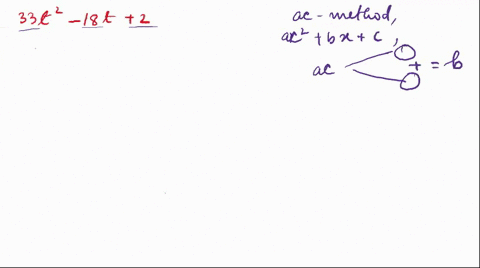 33t² - 18t + 2
ac - method,
ax² + bx + c ,
ac + = b